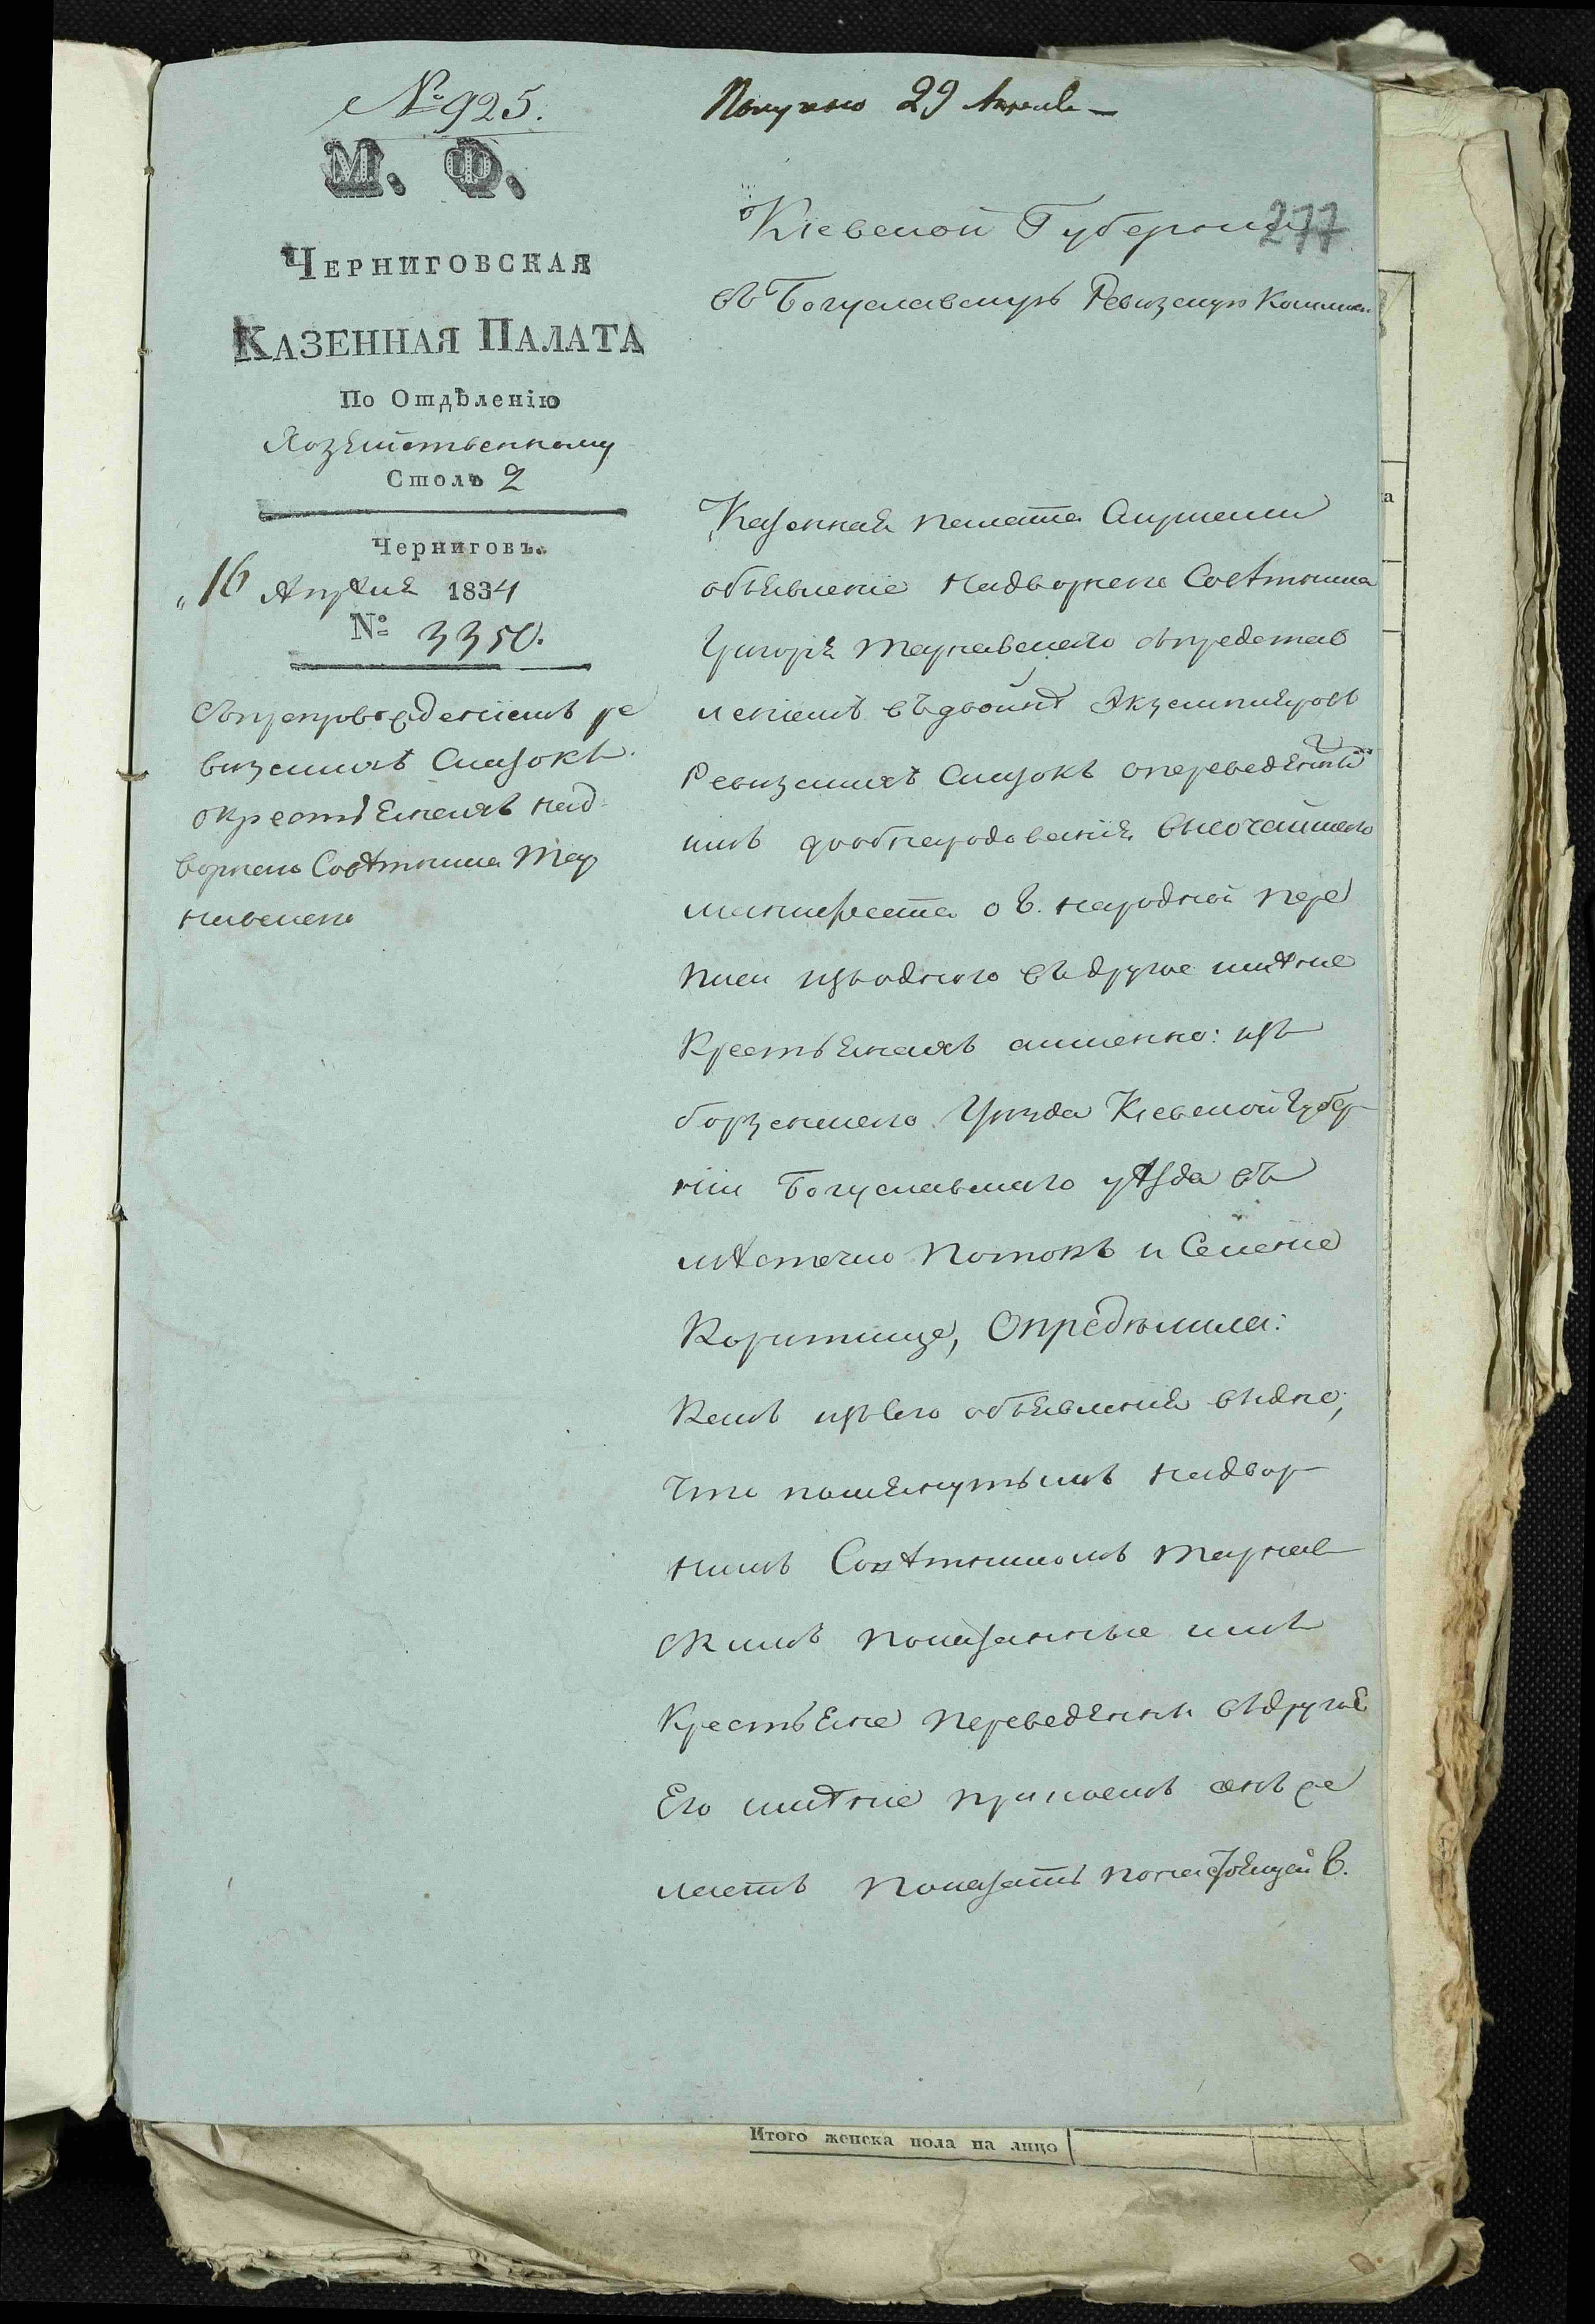 № 925.
М. Ф.
Черниговская
Казенная Палата
По Отдѣленію
Хозяйственному
Столъ 2
Черниговъ.
„16 Апрѣля 1834
№ 3350.
Съ препровожденіемъ ре
визскихъ сказокъ
о крестьянахъ над
ворнаго Совѣтника Тар
навскаго
Получено 29 Апреля
277
Кіевской Губерніи
въ Богуславскую Ревизскую Коммис
Казенная палата слушали
объявленіе надворнаго Совѣтника
Григорія Тарнавскаго съ представ
леніемъ въ двойнѣ Экземпляровъ
Ревизскихъ сказокъ о переведенны
имъ до обнародованія высочайшаго
манифеста о 8. народной пере
писи изъ одного въ другое имѣніе
Крестьянахъ а именно: изъ
борзенскаго Уѣзда Кіевской Губер
ніи Богуславскаго уѣзда въ
мѣстечко Потокъ и Селеніе
Коритище, Опредѣлила:
Какъ изъ его объявленія видно,
что помянутымъ надвор
нымъ Совѣтникомъ Тарнав
скимъ показанные имъ
Крестьяне переведены въ другое
Его имѣніе при коемъ онъ же
лаетъ показать по настоящей 8.
Итого женска пола на лицо